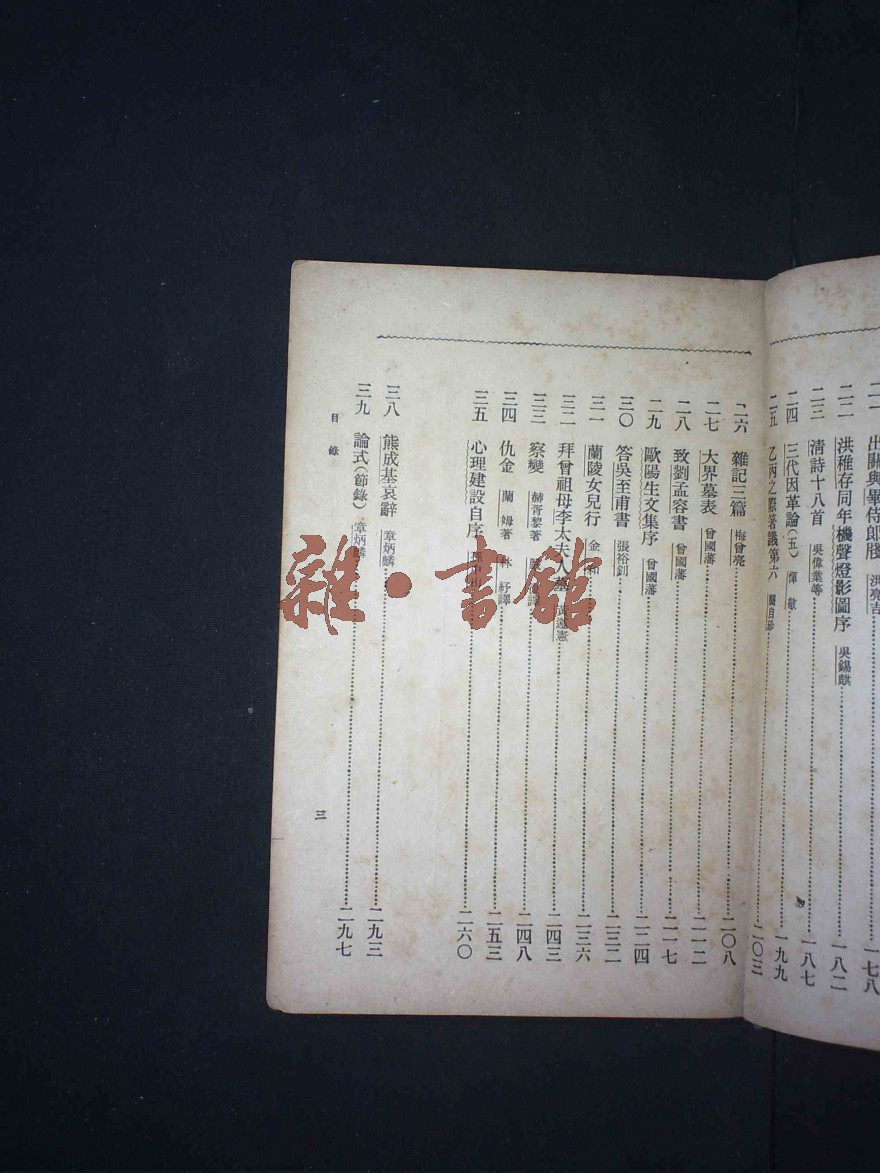 出關與畢侍郎牋 洪亮吉 一七八
二二 洪稚存同年機聲燈影圖序 吳錫麒 一八二
二三 清詩十八首 吳偉業等 一八七
二四 三代因革論（五） 惲敬 一九九
二五 乙丙之際著議第六 龔自珍 二〇三
二六 雜記三篇 梅曾亮 二〇八
二七 大界墓表 曾國藩 二一二
二八 致劉孟容書 曾國藩 二一七
二九 歐陽生文集序 曾國藩 二二四
三〇 答吳至甫書 張裕釗 二三二
三一 蘭陵女兒行 金和 二三六
三二 拜曾祖母李太夫人墓 黃遵憲 二四三
三三 察變 赫胥黎著 譯 二四八
三四 仇金 蘭姆著 林紓譯 二五三
三五 心理建設自序 二六〇
三八 熊成基哀辭 章炳麟 二九三
三九 論式（節錄） 章炳麟 二九七
目錄
三
雜·書館